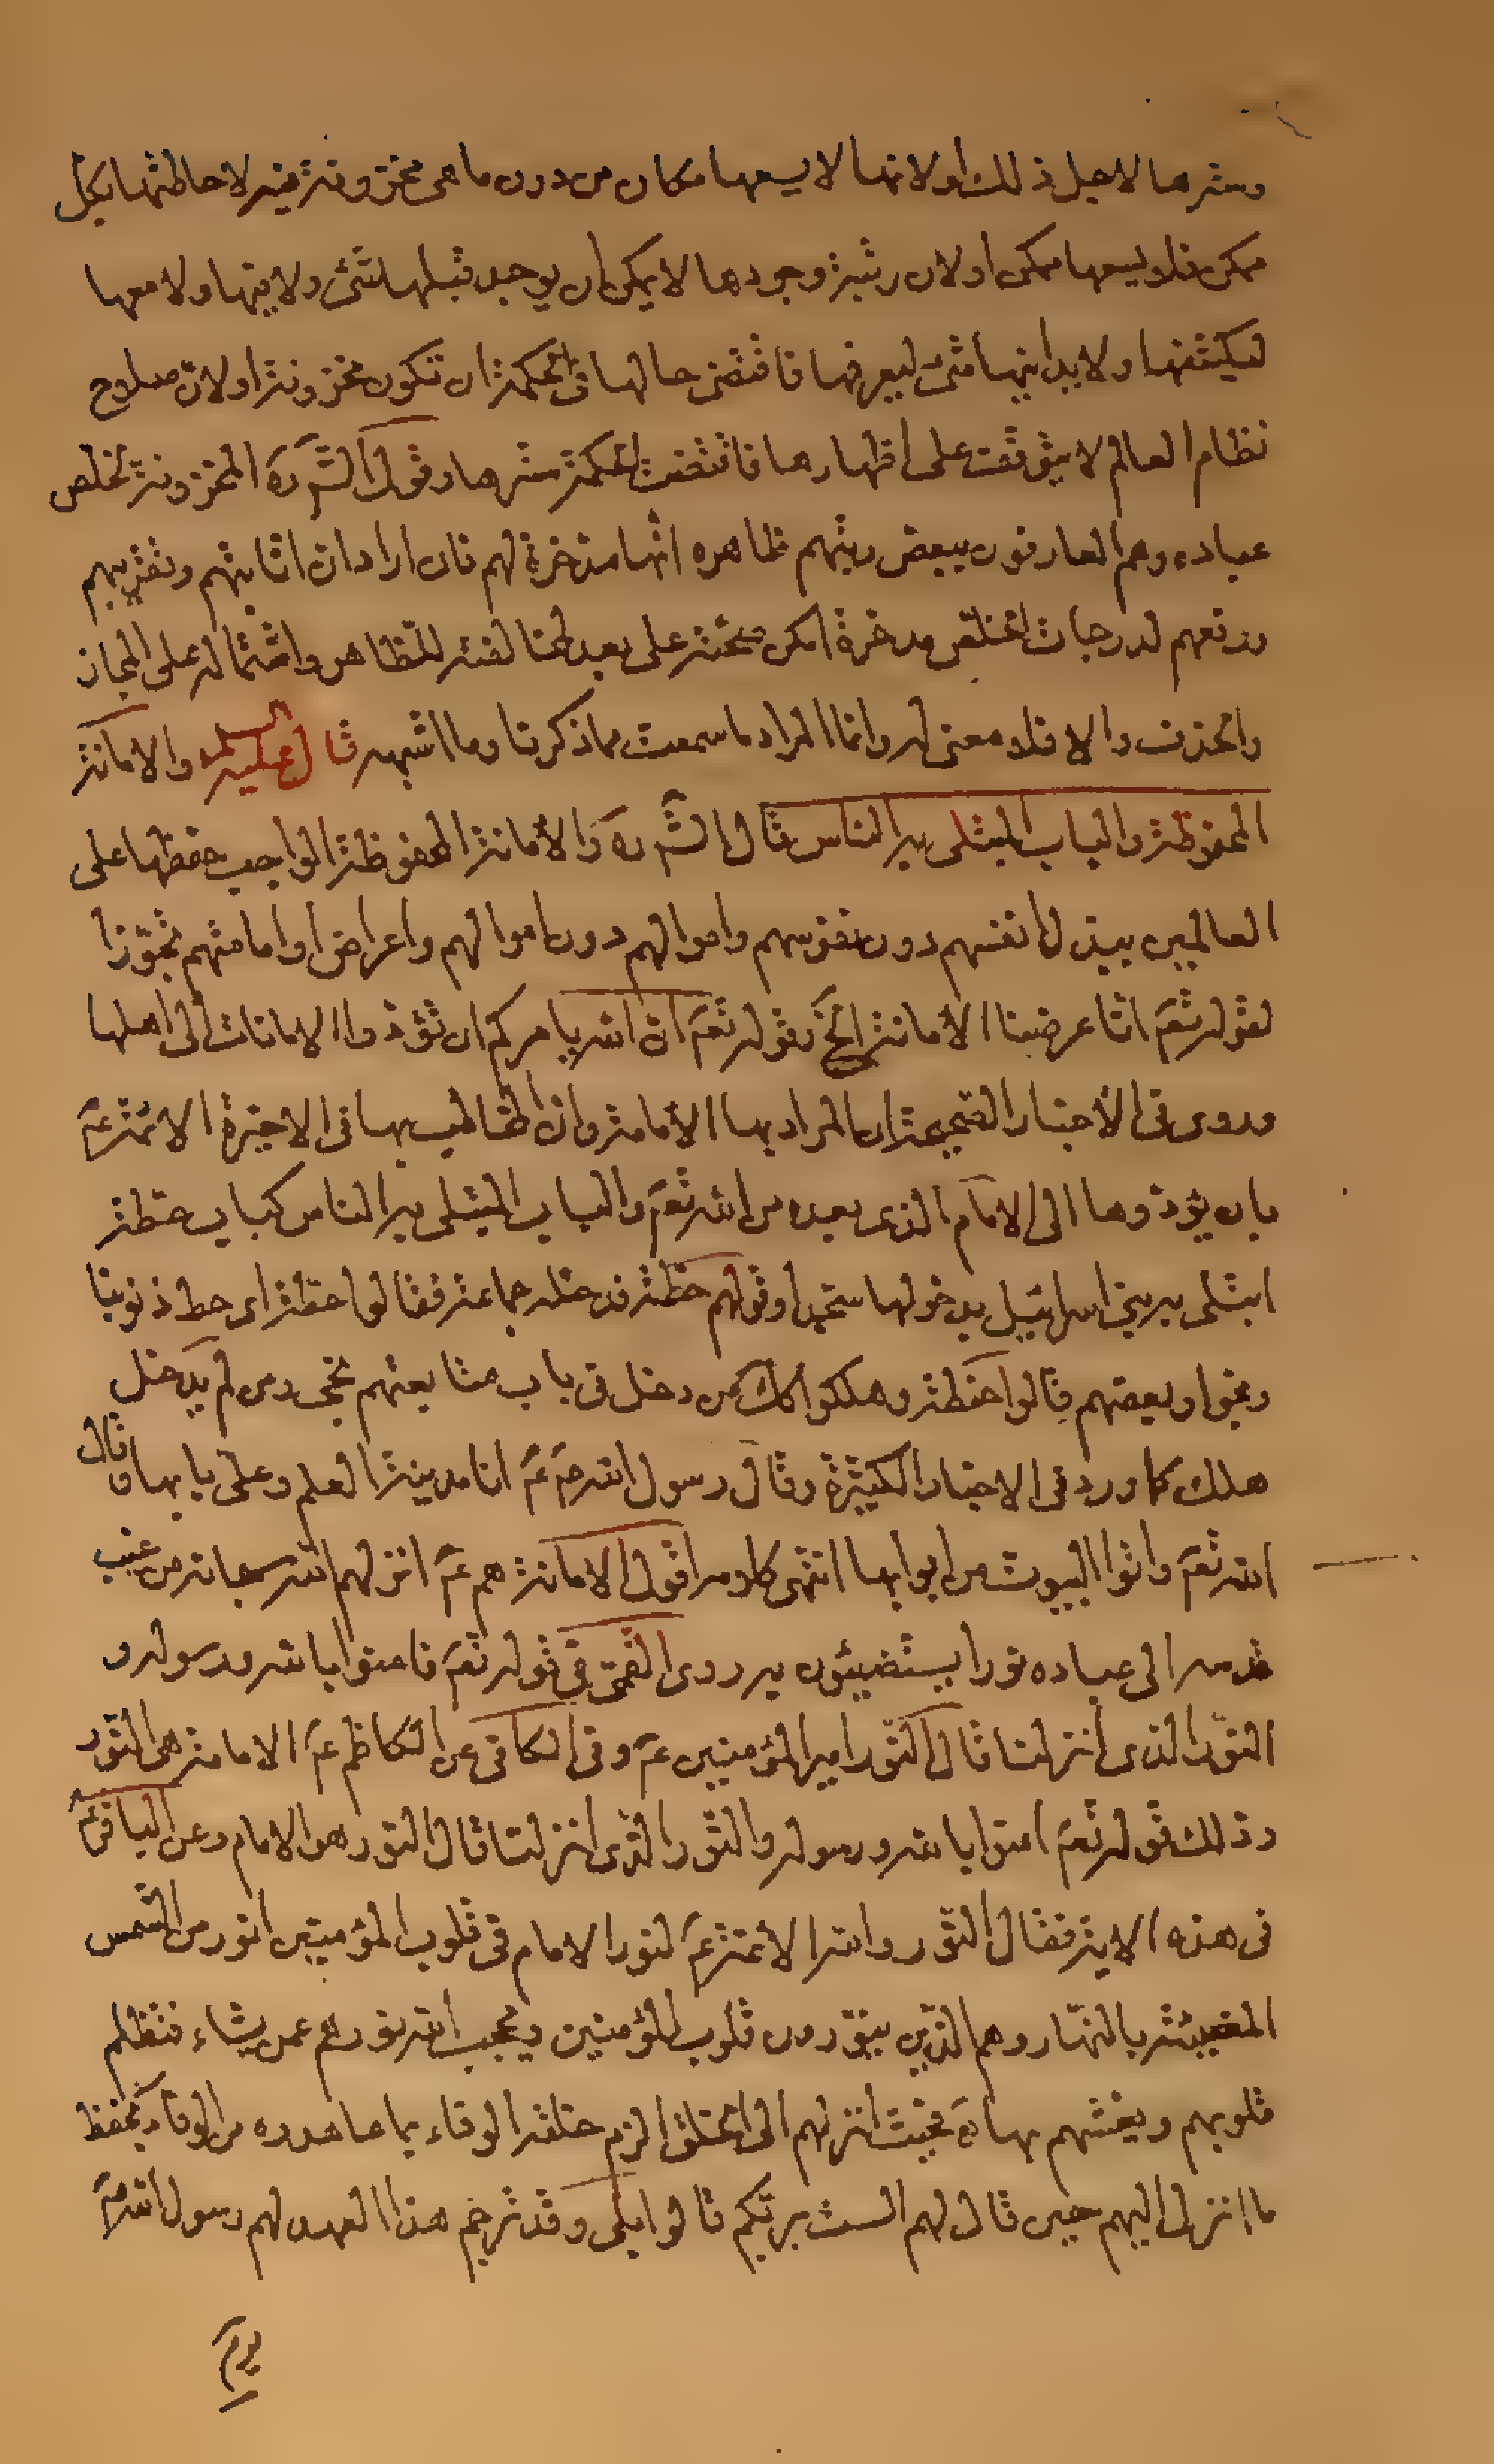 وسترها لاجل ذلك او لانها لا يسعها مكان من دون ما هى مخزونة فيه لاحاطتها بكل
ممكن فلا يسعها ممكن او لان رتبة وجودها لا يمكن ان يوجد قبلها شئ ولا فيها ولا معها
ليكيفها ولا يدانيها شئ ليعرفها فاقتضى حالها فى الحكمة ان تكون مخزونة او لان صلوح
نظام العالم لا يتوقف على اظهارها فاقتضت الحكمة سترها وقول الش ره المخزونة لخلص
عباده وهم العارفون ببعض رتبهم ظاهره انها مدخرة لهم فان اراد ان اثابتهم وتقريبهم
ورفعهم لدرجات الخلص مدخرة امكن صحته على بعد لمخالفته للظاهر واشتماله على المجاز
والحذف والا فلا معنى له وانما المراد ما سمعت مما ذكرنا وما اشبهه قال عليه السلم والامانة
المحفوظة والباب المبتلى به الناس قال الش ره والأمانة المحفوظة الواجب حفظها على
العالمين ببذل انفسهم دون نفوسهم واموالهم دون اموالهم واعراض او امامتهم تجوزا
لقوله تعم انا عرضنا الأمانة الخ وقوله تعم ان الله يامركم ان تؤدوا الامانات الى اهلها
وروى فى الأخبار الصحيحة ان المراد بها الأمامة وان المخاطب بها فى الاخيرة الائمة عم
بان يؤدوها الى الامام الذى بعده من الله تعم والباب المبتلى به الناس كباب حطة
ابتلى به بنى اسرائيل بدخولها سجدا وقولهم حطة فدخله جماعة فقالوا حطة اى حط ذنوبنا
ونجوا وبعضهم قالوا حنطة وهلكوا كك من دخل فى باب متابعتهم نجى ومن لم يدخل
هلك كما ورد فى الاخبار الكثيرة وقال رسول الله صم عم انا مدينة العلم وعلى بابها وقال
الله تعم واتوا البيوت من ابوابها انتهى كلامه اقول الامانة هم عم انزلهم الله سبحانه من غيب
قدسه الى عباده نورا يستضيئون به روى القمى فى قوله تعم فامنوا بالله ورسوله و
النور الذى انزلنا قال النور امير المؤمنين عم وفى الكافى عن الكاظم عم الامامة هى النور
وذلك قوله تعم امنوا بالله ورسوله والنور الذى انزلنا قال النور هو الامام وعن الباقر عم
فى هذه الاية فقال النور والله الأئمة عم لنور الامام فى قلوب المؤمنين انور من الشمس
المضيئة بالنهار وهم الذين ينورون قلوب المؤمنين ويحجب الله نورهم عمن يشاء فتظلم
قلوبهم ويغشهم بها فحيث انزلهم الى الخلق الزم خلقه الوفاء بما عاهدوه من الوفاء بحفظ
ما انزل اليهم حين قال لهم الست بربكم قالوا بلى وقد ترجم هذا العهد لهم رسول الله صم
يوم